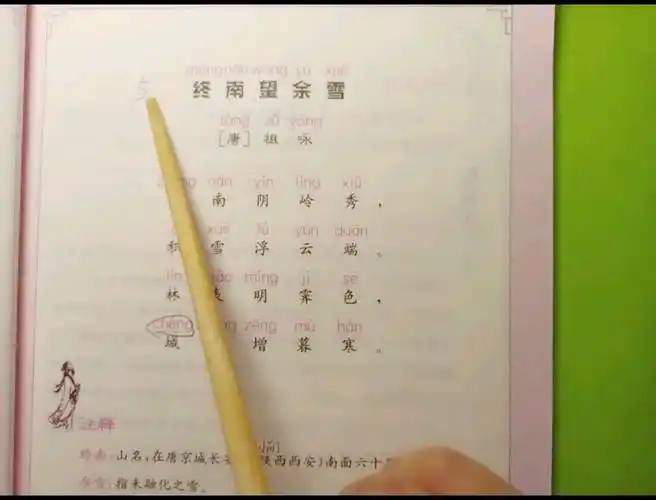 zhōng nán wàng yú xuě
终南望余雪
táng zǔ yǒng
[唐] 祖咏
nán yīn lǐng xiù
南阴岭秀，
xuě fú yún duān
积雪浮云端。
lín biǎo míng jì sè
林表明霁色，
chéng zhōng zēng mù hán
城 增暮寒。
注释
终南:山名,在唐京城长安(陕西西安)南面六十
余雪:指未融化之雪。